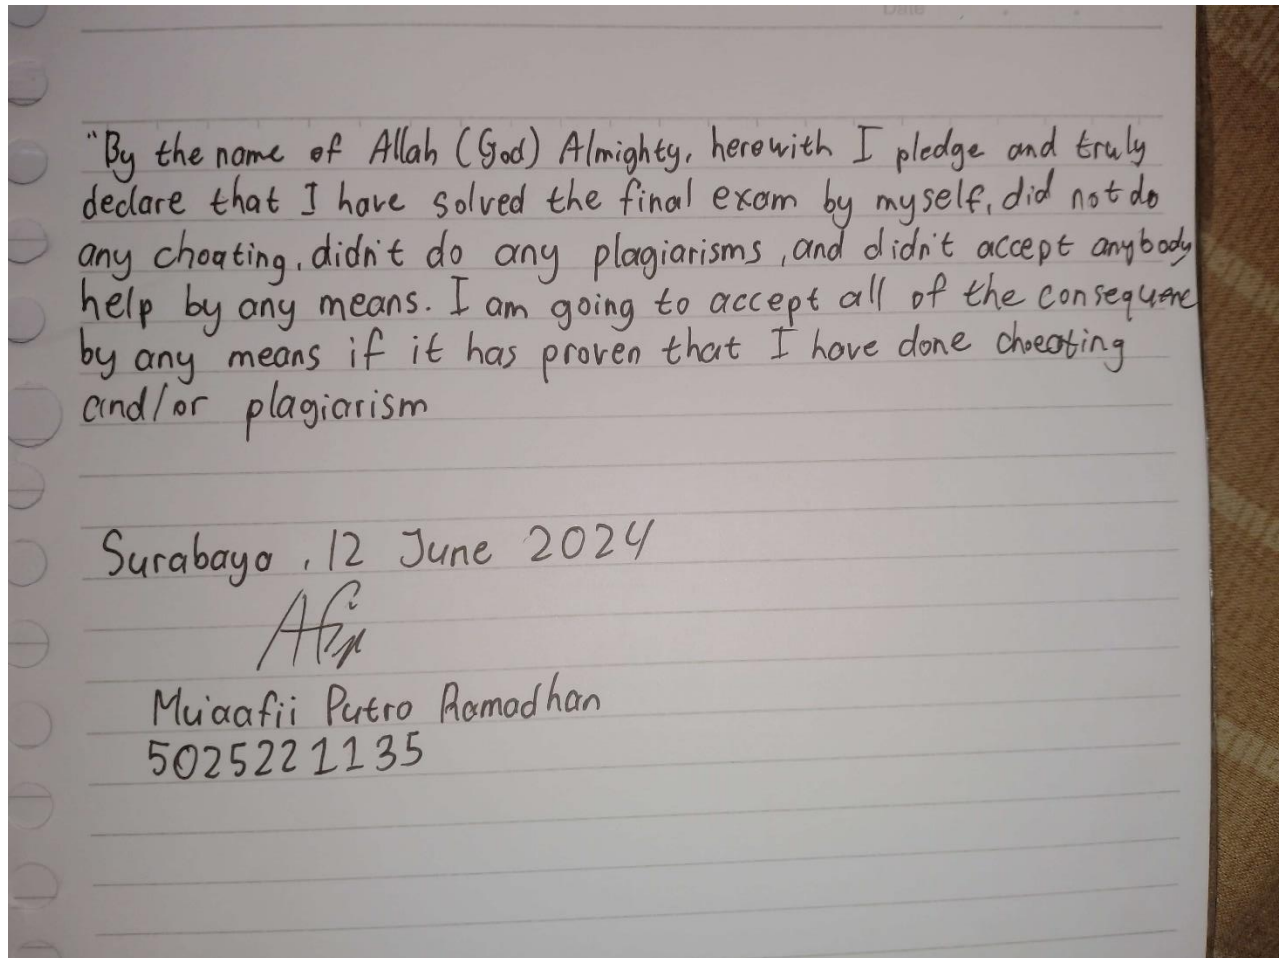 Date
"By the name of Allah (God) Almighty, herewith I pledge and truly
declare that I have solved the final exam by myself, did not do
any cheating, didn't do any plagiarisms, and didn't accept anybody
help by any means. I am going to accept all of the consequence
by any means if it has proven that I have done cheating
and/or plagiarism
Surabaya, 12 June 2024
Putro Ramadhan
5025221135